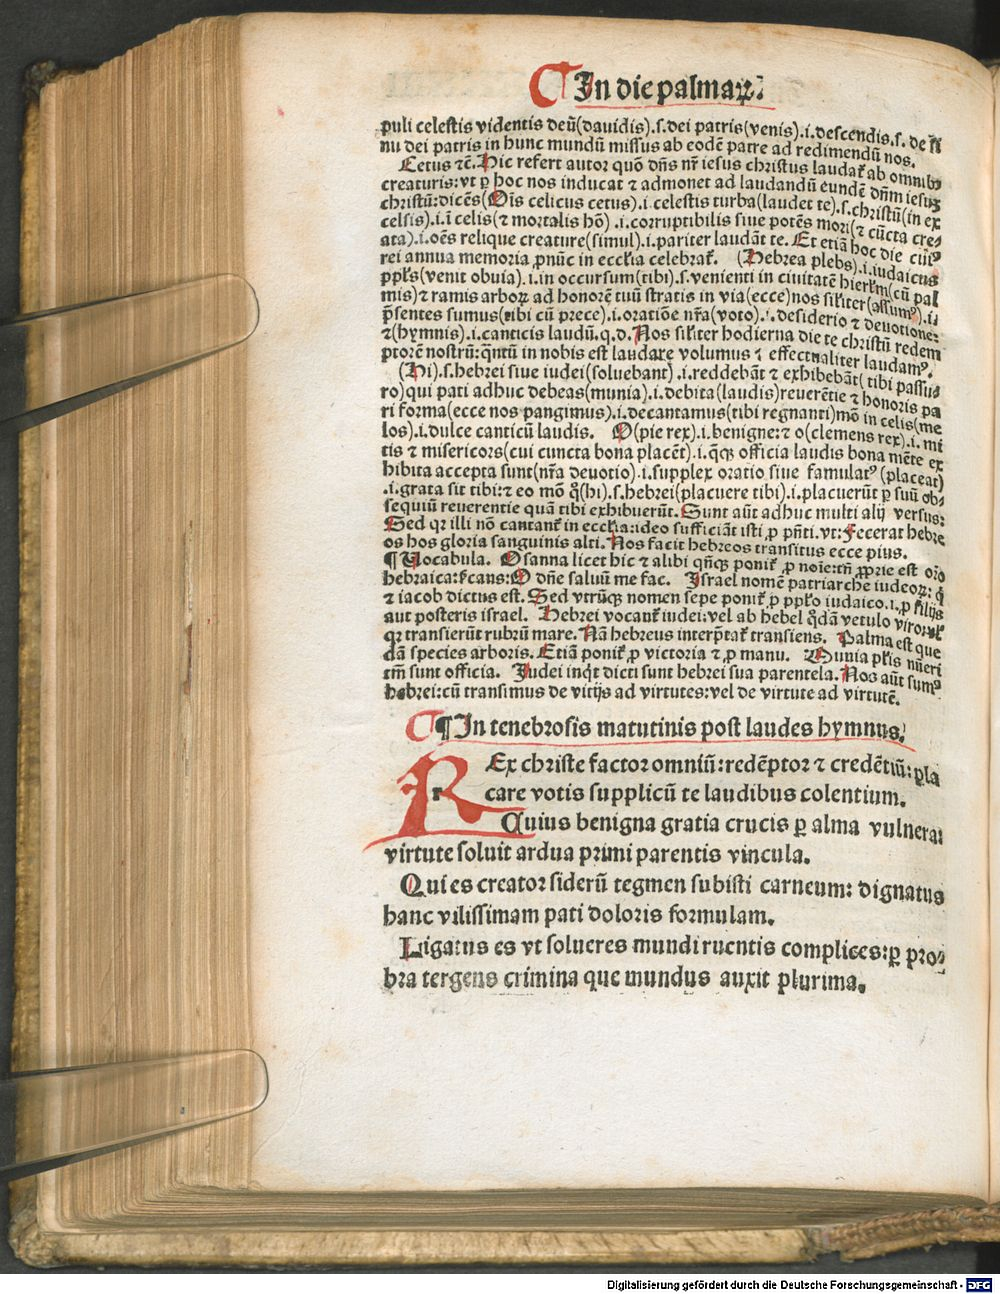 In die palmaꝝ
puli celestis videntis deū(dauidis).s.dei patris(venis).i.descendis.s.de si
nu dei patris in hunc mundū missus ab codē patre ad redimendū nos.
Cetus ⁊c̄.Hic refert autor quō dn̄s nr̄ iesus christus laudat᷑ ab omnibꝰ
creaturis:vt ꝑ hoc nos inducat ⁊ admonet ad laudandū eundē dn̄m iesuꝫ
christū:dicēs(Oīs celicus cetus).i.celestis turba(laudet te).s.christū(in ex
celsis).i.ī celis(⁊ mortalis hō) .i.corruptibilis siue potēs mori(⁊ cūcta cre
ata).i.oēs relique creature(simul).i.pariter laudāt te. Et etiā hoc die cuiꝰ
rei annua memoria ꝓnūc in ecclīa celebrat᷑. (Hebrea plebs).i.iudaicus
ppl̄s(venit obuia).i.in occursum(tibi).s.venienti in ciuitatē hierl̄m(cū pal
mis)⁊ ramis arboꝝ ad honorē tuū stratis in via(ecce)nos sil̄iter(assumꝰ).i.
p̄sentes sumus(tibi cū prece).i.oratiōe nr̄a(voto).i.desiderio ⁊ deuotione:
⁊(hymnis).i.canticis laudū.q.d.Nos sil̄iter hodierna die te christū redem
ptorē nostrū:qn̄tū in nobis est laudare volumus ⁊ effectualiter laudamꝰ.
(Hi).s.hebrei siue iudei(soluebant).i.reddebāt ⁊ exhibebāt(tibi passu
ro)qui pati adhuc debeas(munia).i.debita(laudis)reuerētie ⁊ honoris pa
ri forma(ecce nos pangimus).i.decantamus(tibi regnanti)mō in celis(me
los).i.dulce canticū laudis. O(pie rex).i.benigne:⁊ o(clemens rex).i.mi
tis ⁊ misericors(cui cuncta bona placēt).i.q̄qꝫ officia laudis bona mēte ex
hibita accepta sunt(nr̄a deuotio).i.supplex oratio siue famulatꝰ(placeat)
.i.grata sit tibi:⁊ eo mō q̄(hi).s.hebrei(placuere tibi).i.placuerūt ꝑ suū ob
sequiū reuerentie quā tibi exhibuerūt.Sunt aūt adhuc multi alij versus:
Sed qꝛ illi nō cantant᷑ in ecclīa:ideo sufficiāt isti ꝓ pn̄ti.vt:Fecerat hebre
os hos gloria sanguinis alti.Nos facit hebreos transitus ecce pius.
¶ Vocabula. Osanna licet hic ⁊ alibi qn̄qꝫ ponit᷑ ꝓ noīe:tn̄ ꝓprie est or̄o
hebraica:s̄cans:O dn̄e saluū me fac. Israel nomē patriarche iudeoꝝ: q̄
⁊ iacob dictus est.Sed vtrūqꝫ nomen sepe ponit᷑ ꝓ ppl̄o iudaico.i.ꝓ filijs
aut posteris israel. Hebrei vocant᷑ iudei:vel ab hebel q̄dā vetulo
qꝛ transierūt rubrū mare.Nā hebreus interp̄tat᷑ transiens. Palma est que
dā species arboris.Etiā ponit᷑ ꝓ victoria ⁊ ꝓ manu. Munia pl̄is nūeri
tm̄ sunt officia. Iudei inq̄t dicti sunt hebrei sua parentela.Nos aūt sumꝰ
hebrei:cū transimus de vitijs ad virtutes:vel de virtute ad virtutē.
¶In tenebrosis matutinis post laudes hymnus.
REx christe factor omniū:redēptor ⁊ credētiū:pla
care votis supplicū te laudibus colentium.
Cuius benigna gratia crucis ꝑ alma vulnera:
virtute soluit ardua primi parentis vincula.
Qui es creator siderū tegmen subisti carneum: dignatus
hanc vilissimam pati doloris formulam.
Ligatus es vt solueres mundi ruentis complices:ꝑ pro
bra tergens crimina que mundus auxit plurima.
Digitalisierung gefördert durch die Deutsche Forschungsgemeinschaft - DFG